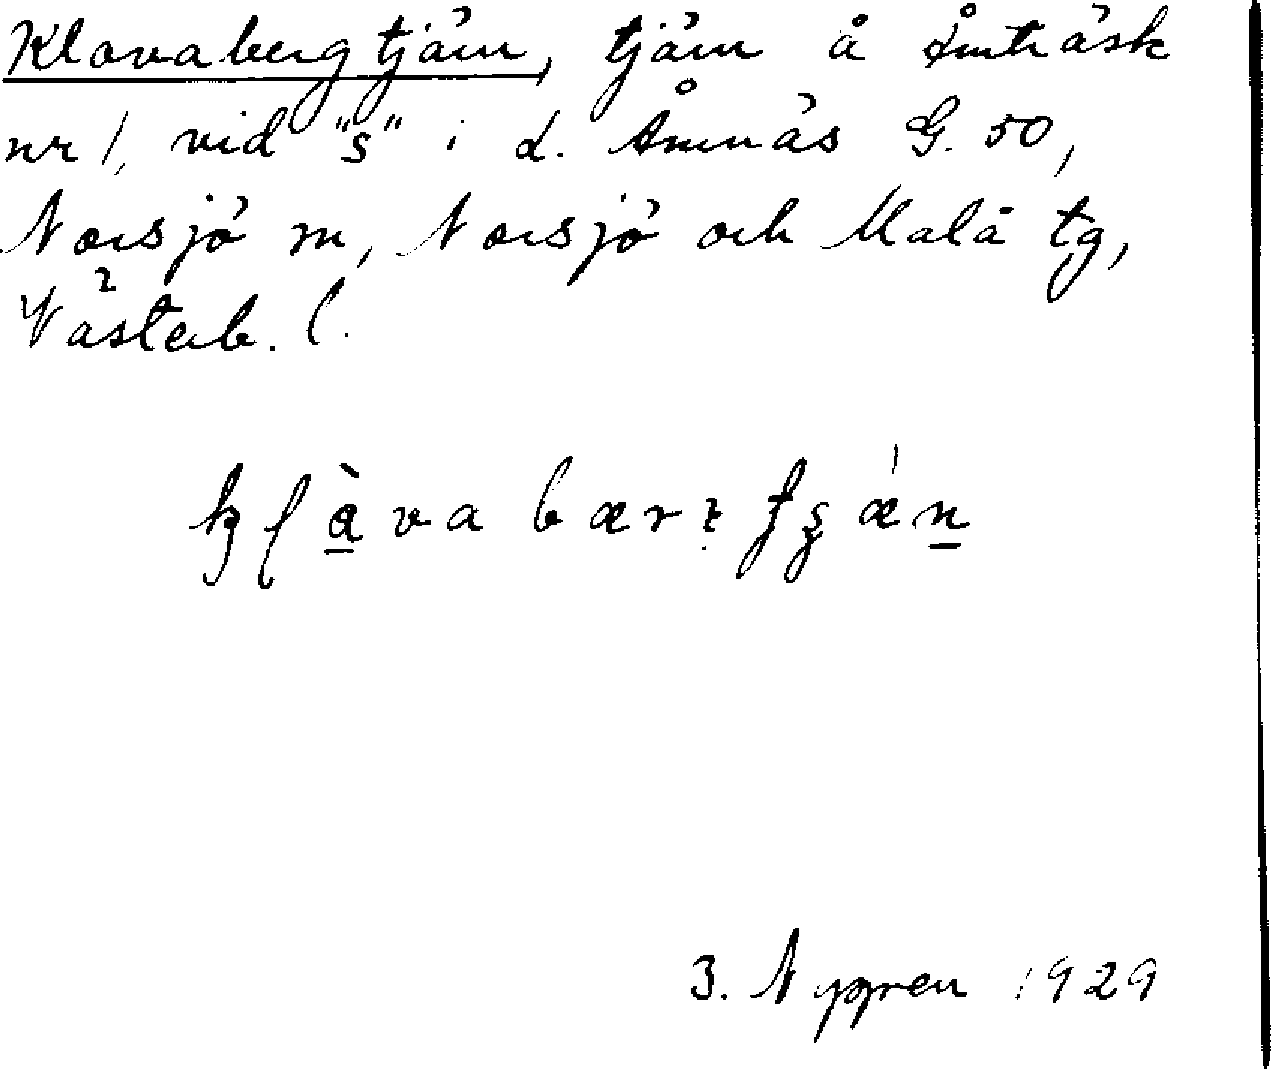 Klovabergtjärn, tjärn å Åmträsk
nr 1, vid "s" i d. Åmnäs G. 50,
Norsjö sn, Norsjö och Malå tg,
Västerb. l.
J. Nygren 1929